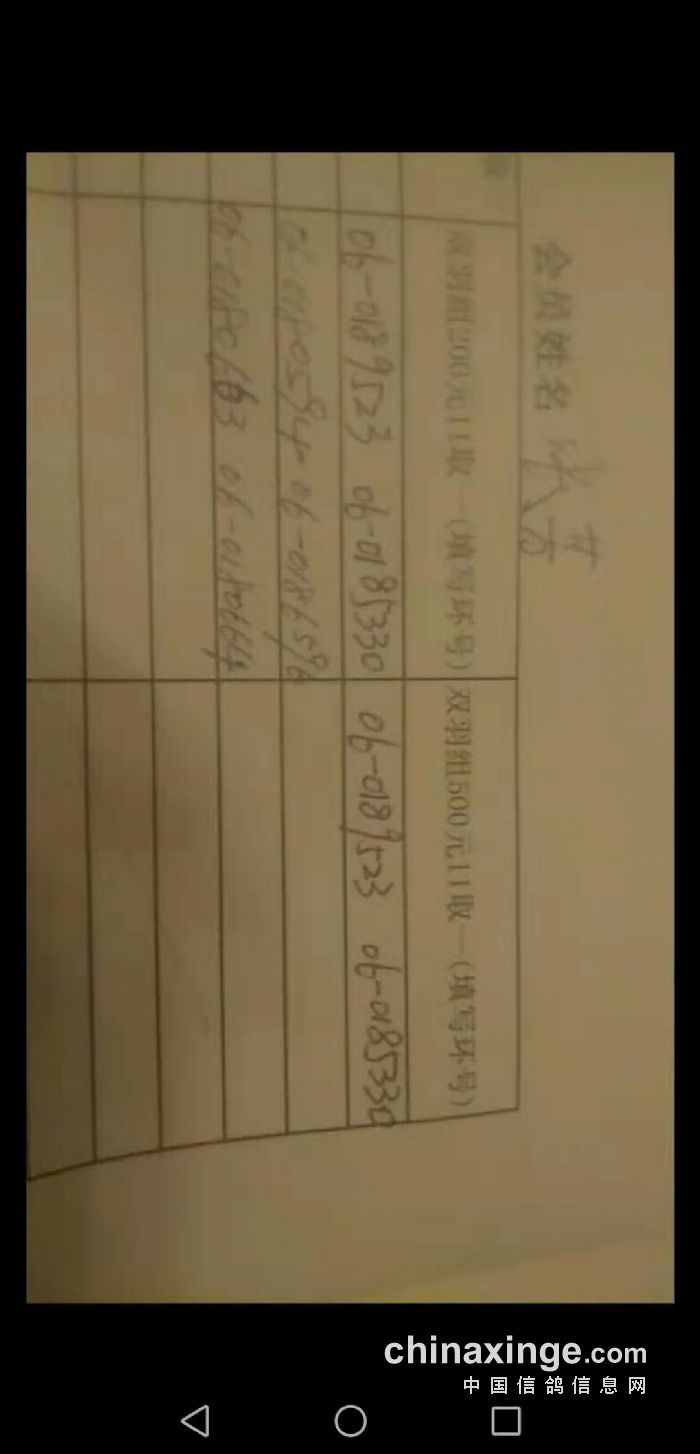 会员姓名
双羽组200元11取一(填写环号) 双羽组500元11取一(填写环号)
06-0189523 06-0185330 06-0189523 06-0185330
06-0186596
06-0180663 06-0180664
chinaxinge.com
中国信鸽信息网